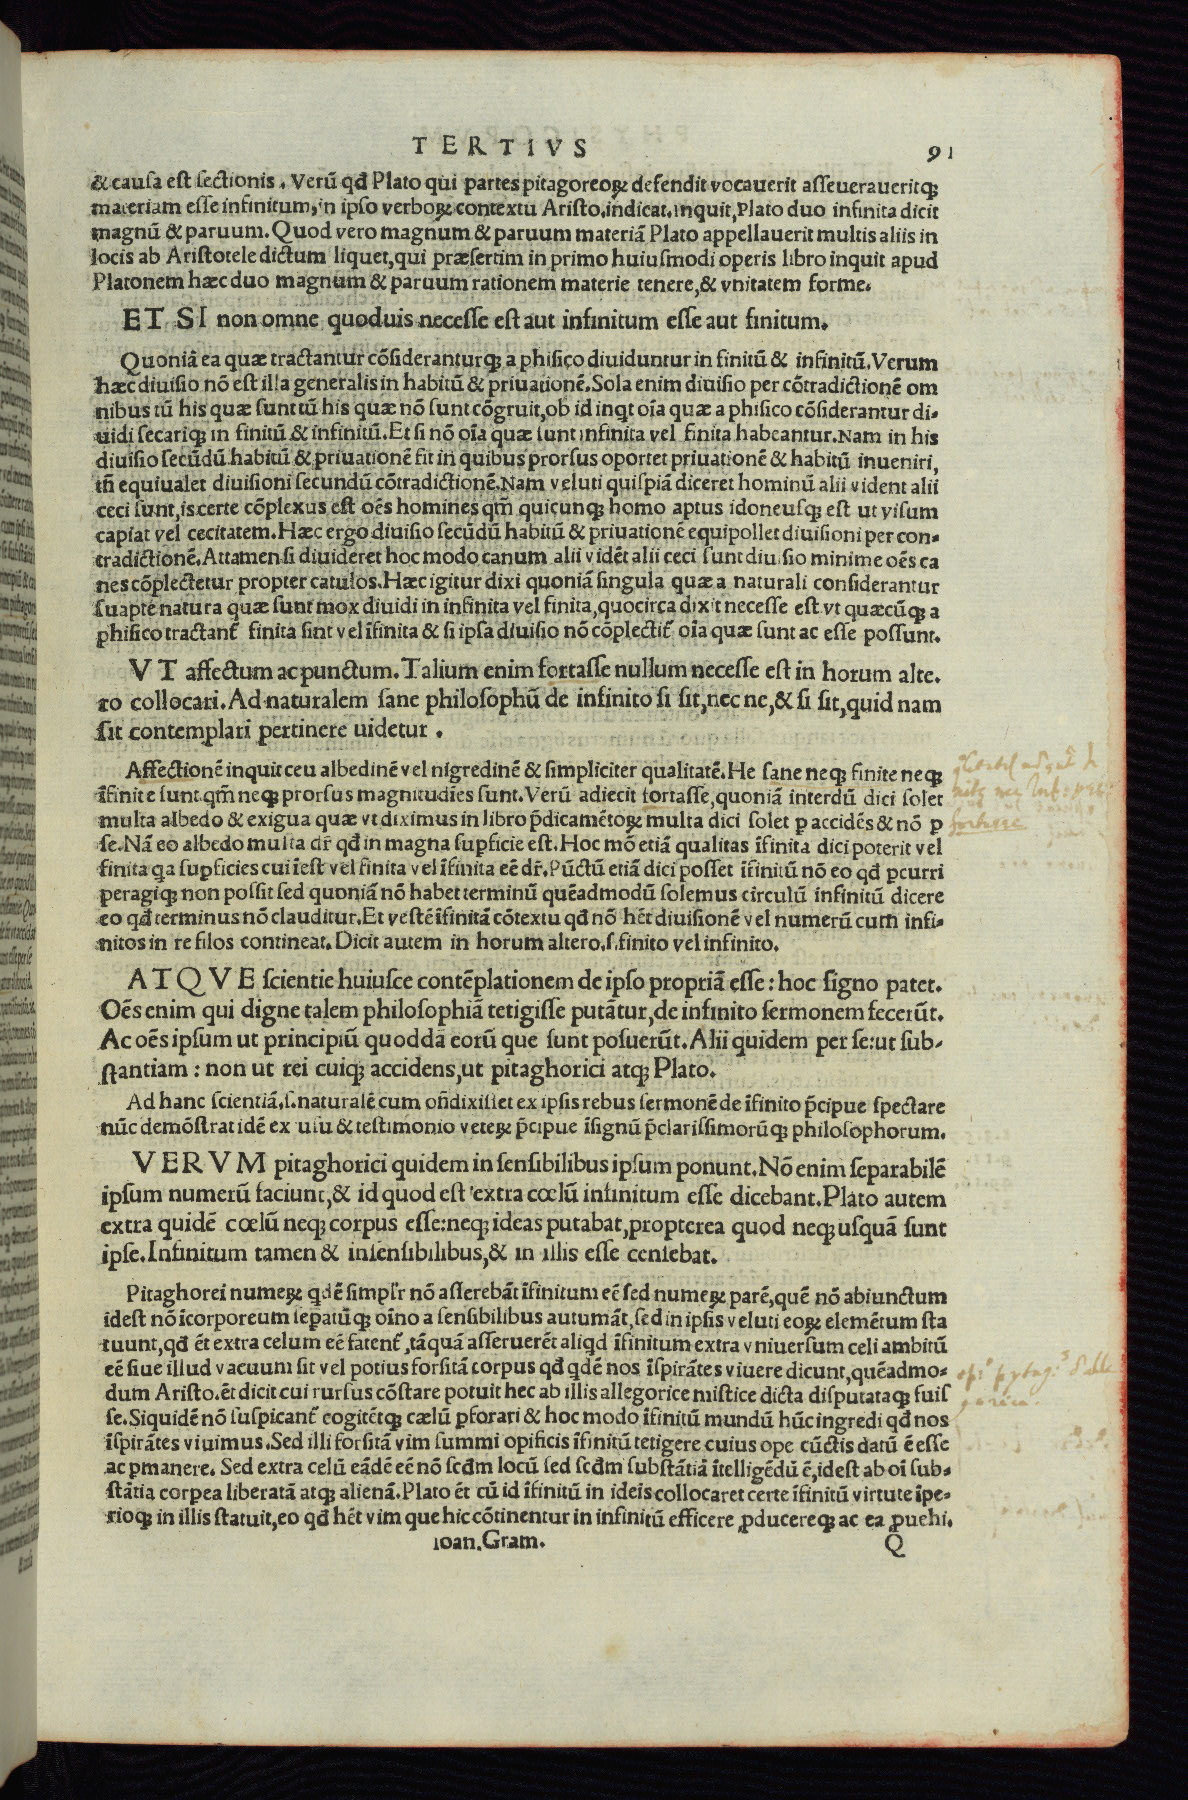 TERTIVS 91
& causa est sectionis. Verū qđ Plato qui partes pitagoreoꝝ defendit vocauerit asseueraueritqꝫ
materiam esse infinitum, in ipso verboꝝ contextu Aristo. indicat. inquit, Plato duo infinita dicit
magnū & paruum. Quod vero magnum & paruum materiā Plato appellauerit multis aliis in
locis ab Aristotele dictum liquet, qui præsertim in primo huiusmodi operis libro inquit apud
Platonem hæc duo magnum & paruum rationem materie tenere, & vnitatem forme.
ET SI non omne quoduis necesse est aut infinitum esse aut finitum.
Quoniā ea quæ tractantur cōsideranturqꝫ a phisico diuiduntur in finitū & infinitū. Verum
hæc diuisio nō est illa generalis in habitū & priuationē. Sola enim diuisio per cōtradictionē om
nibus tū his quæ sunt tū his quæ nō sunt cōgruit, ob id inqt oīa quæ a phisico cōsiderantur di-
uidi secariqꝫ in finitū & infinitū. Et si nō oīa quæ sunt infinita vel finita habeantur. Nam in his
diuisio secūdū habitū & priuationē fit in quibus prorsus oportet priuationē & habitū inueniri,
tñ equiualet diuisioni secundū cōtradictionē. Nam veluti quispiā diceret hominū alii vident alii
ceci sunt, is certe cōplexus est oēs homines qm̄ quicunqꝫ homo aptus idoneusqꝫ est ut visum
capiat vel cecitatem. Hæc ergo diuisio secūdū habitū & priuationē equipollet diuisioni per con-
tradictionē. Attamen si diuideret hoc modo canum alii vidēt alii ceci sunt diuisio minime oēs ca
nes cōplectetur propter catulos. Hæc igitur dixi quoniā singula quæ a naturali considerantur
suapte natura quæ sunt mox diuidi in infinita vel finita, quocirca dixit necesse est vt quæcūqꝫ a
phisico tractant̄ finita sint vel īfinita & si ipsa diuisio nō cōplectit̄ oīa quæ sunt ac esse possunt.
VT affectum ac punctum. Talium enim fortasse nullum necesse est in horum alte.
ro collocari. Ad naturalem sane philosophū de infinito si sit, nec ne, & si sit, quid nam
sit contemplari pertinere uidetur.
Affectionē inquit ceu albedinē vel nigredinē & simpliciter qualitatē. He sane neqꝫ finite neqꝫ
īfinite sunt qm̄ neqꝫ prorsus magnitudīes sunt. Verū adiecit fortasse, quoniā interdū dici solet
multa albedo & exigua quæ vt diximus in libro p̄dicamētoꝝ multa dici solet ꝑ accidēs & nō ꝑ
se. Nā eo albedo multa dr̄ qđ in magna suꝑficie est. Hoc mō etiā qualitas īfinita dici poterit vel
finita qa suꝑficies cui īest vel finita vel īfinita eē dr̄. Pūctū etiā dici posset īfinitū nō eo qđ ꝑcurri
peragiqꝫ non possit sed quoniā nō habet terminū quēadmodū solemus circulū infinitū dicere
eo qđ terminus nō clauditur. Et vestē īfinitā cōtextu qđ nō hēt diuisionē vel numerū cum infi-
nitos in re filos contineat. Dicit autem in horum altero. s. finito vel infinito.
ATQVE scientie huiusce contēplationem de ipso propriā esse: hoc signo patet.
Oēs enim qui digne talem philosophiā tetigisse putātur, de infinito sermonem fecerūt.
Ac oēs ipsum ut principiū quoddā eorū que sunt posuerūt. Alii quidem per se: ut sub-
stantiam: non ut rei cuiqꝫ accidens, ut pitaghorici atqꝫ Plato.
Ad hanc scientiā. s. naturalē cum oñdixisset ex ipsis rebus sermonē de īfinito p̄cipue spectare
nūc demōstrat idē ex usu & testimonio veteꝝ p̄cipue īsignū p̄clarissimorūqꝫ philosophorum.
VERVM pitaghorici quidem in sensibilibus ipsum ponunt. Nō enim separabilē
ipsum numerū faciunt, & id quod est extra cœlū infinitum esse dicebant. Plato autem
extra quidē cœlū neqꝫ corpus esse: neqꝫ ideas putabat, propterea quod neqꝫ usquā sunt
ipse. Infinitum tamen & insensibilibus, & in illis esse censebat.
Pitaghorei numeꝝ qdē simplr̄ nō asserebāt īfinitum eē sed numeꝝ parē, quē nō abiunctum
idest nō īcorporeum seꝑatūqꝫ oīno a sensibilibus autumāt, sed in ipsis veluti eoꝝ elemētum sta
tuunt, qđ ēt extra celum eē fatent̄, tāquā asseruerēt aliqd īfinitum extra vniuersum celi ambitū
eē siue illud vacuum sit vel potius forsitā corpus qđ qdē nos īspirātes viuere dicunt, quēadmo-
dum Aristo. ēt dicit cui rursus cōstare potuit hec ab illis allegorice mistice dicta disputataqꝫ fuis
se. Siquidē nō suspicant̄ cogitētqꝫ cælū ꝑforari & hoc modo īfinitū mundū hūc ingredi qđ nos
īspirātes viuimus. Sed illi forsitā vim summi opificis īfinitū tetigere cuius ope cūctis datū ē esse
ac ꝑmanere. Sed extra celū eādē eē nō scđm locū sed scđm substātiā ītelligēdū ē, idest ab oī sub-
stātia corꝑea liberatā atqꝫ alienā. Plato ēt cū id īfinitū in ideis collocaret certe īfinitū virtute īpe-
rioqꝫ in illis statuit, eo qđ hēt vim que hic cōtinentur in infinitū efficere ꝓducereqꝫ ac ea ꝓuehi.
Ioan. Gram. Q
fortasse